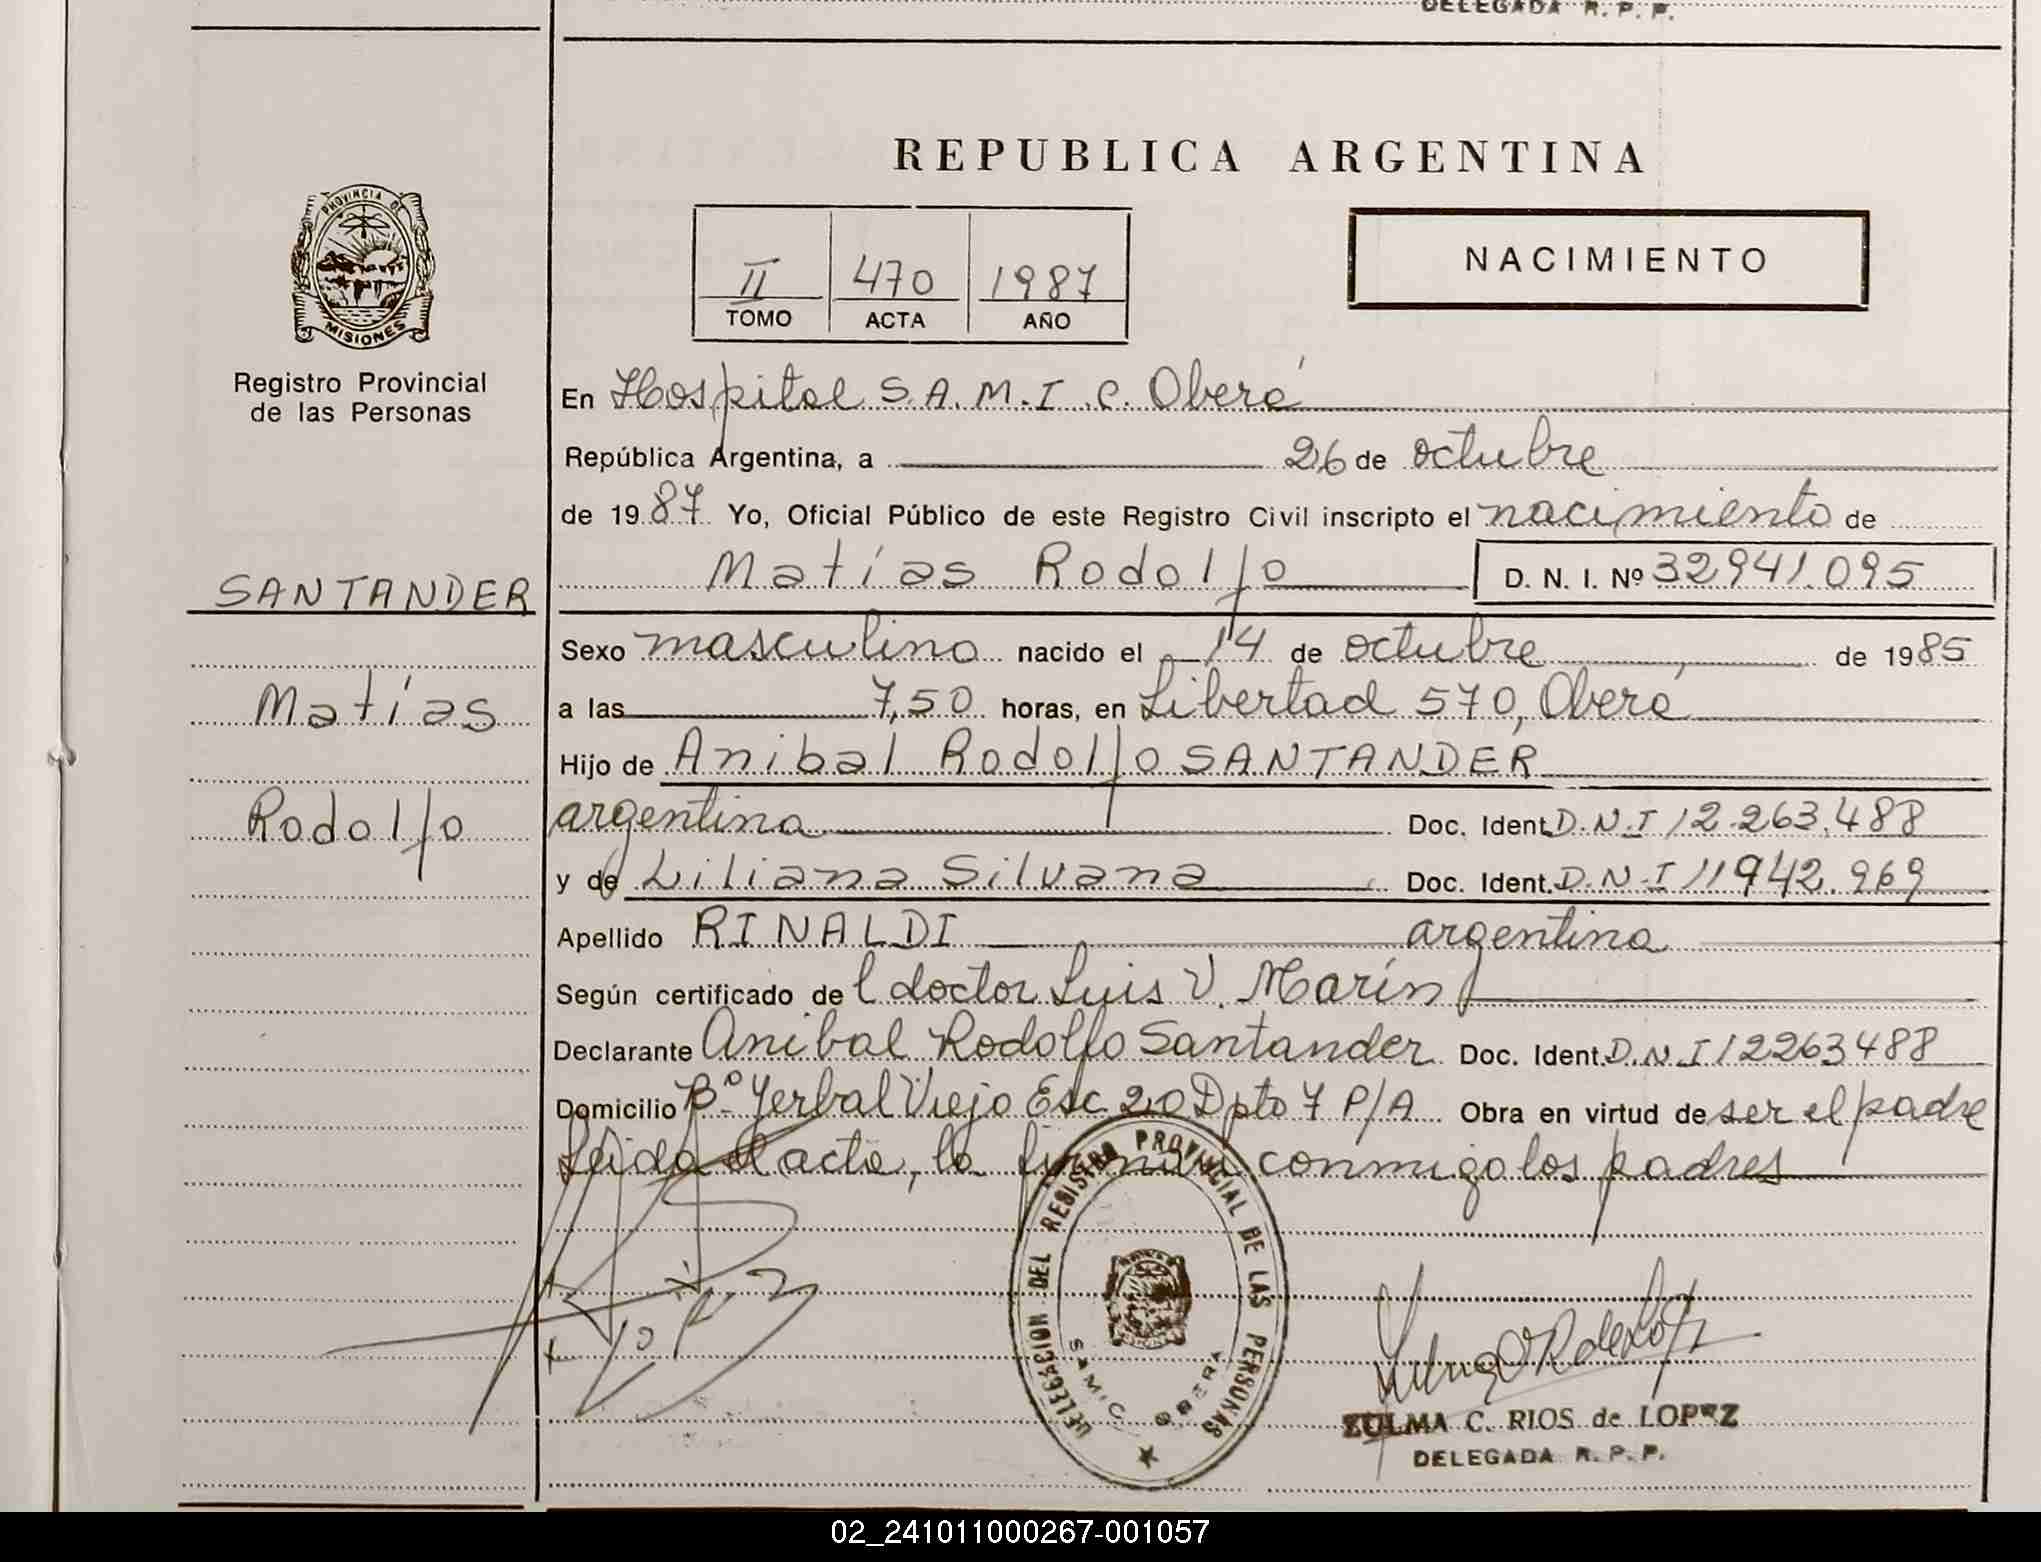 DELEGADA R. P. P.
REPUBLICA ARGENTINA
PROVINCIA DE
MISIONES
II 470 1987
TOMO ACTA AÑO
NACIMIENTO
Registro Provincial
de las Personas
En Hospital S.A.M.I.C. Oberá
República Argentina, a 26 de octubre
de 1987 Yo, Oficial Público de este Registro Civil inscripto el nacimiento de
Matías Rodolfo D. N. I. Nº 32941.095
SANTANDER
Matías
Rodolfo
Sexo masculino nacido el 14 de octubre de 1985
a las 7,50 horas, en Libertad 570, Oberá
Hijo de Anibal Rodolfo SANTANDER
argentino Doc. Ident. D.N.I 12.263.488
y de Liliana Silvana Doc. Ident. D.N.I 11942.969
Apellido RINALDI argentina
Según certificado del doctor Luis V. Marín
Declarante Anibal Rodolfo Santander Doc. Ident. D.N.I 12263488
Domicilio Bº Yerbal Viejo Esc 20 Dpto 7 P/A Obra en virtud de ser el padre
Leida el acta, la firman conmigo los padres
DELEGACION DEL REGISTRO PROVINCIAL DE LAS PERSONAS
SAMIC OBERA
ZULMA C. RIOS de LOPEZ
DELEGADA R. P. P.
02_241011000267-001057